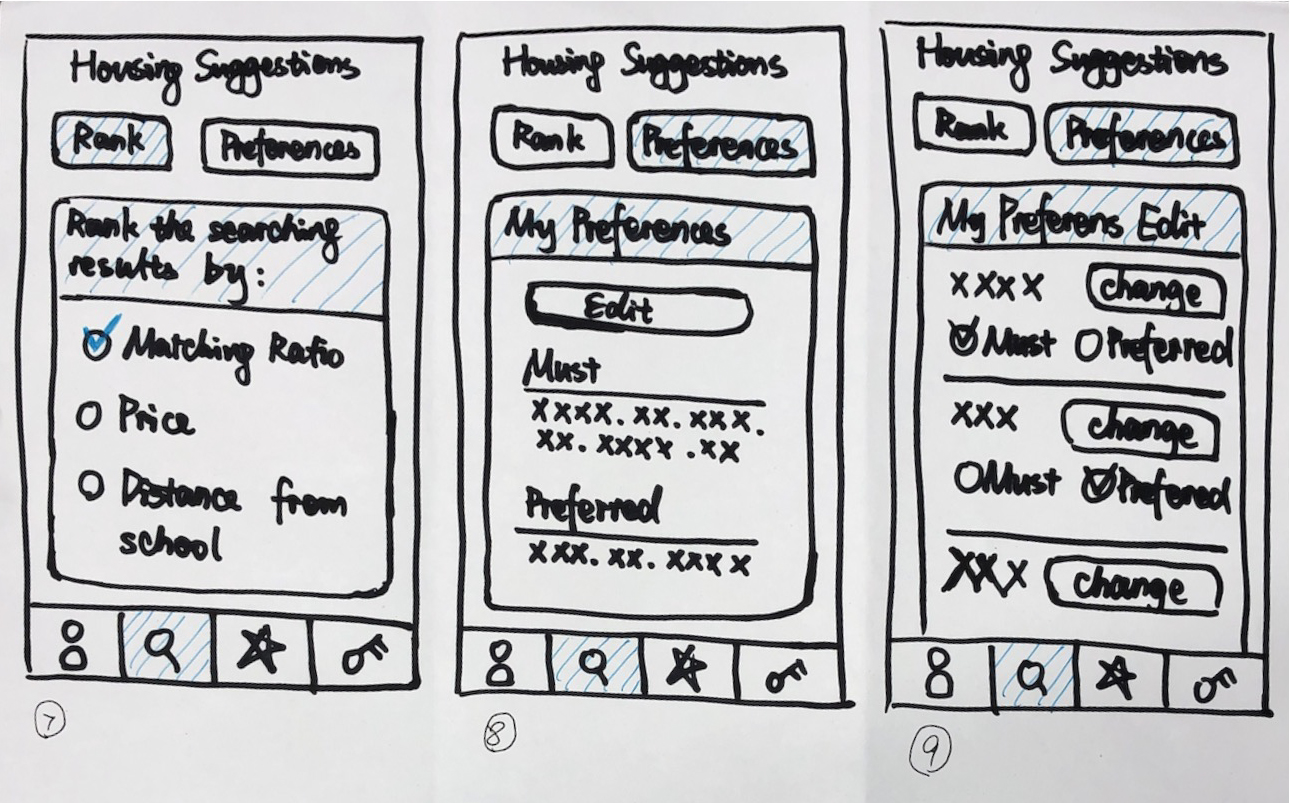 Housing Suggestions
Rank
Preferences
Rank the searching
results by:
Matching Ratio
Price
Distance from
school
7
Housing Suggestions
Rank
Preferences
My Preferences
Edit
Must
xxxx. xx. xxx.
xx. xxxx .xx
Preferred
xxx. xx. xxxx
8
Housing Suggestions
Rank
Preferences
My Preferens Edit
xxxx
change
Must
Preferred
xxx
change
Must
Prefered
xxx
change
9